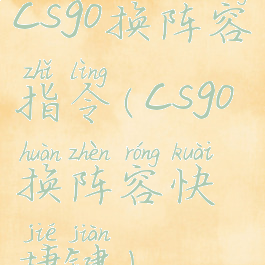 CSgo换阵容
zhǐ lìng
指令(CSgo
huàn zhèn róng kuài
换阵容快
jié jiàn
捷键)